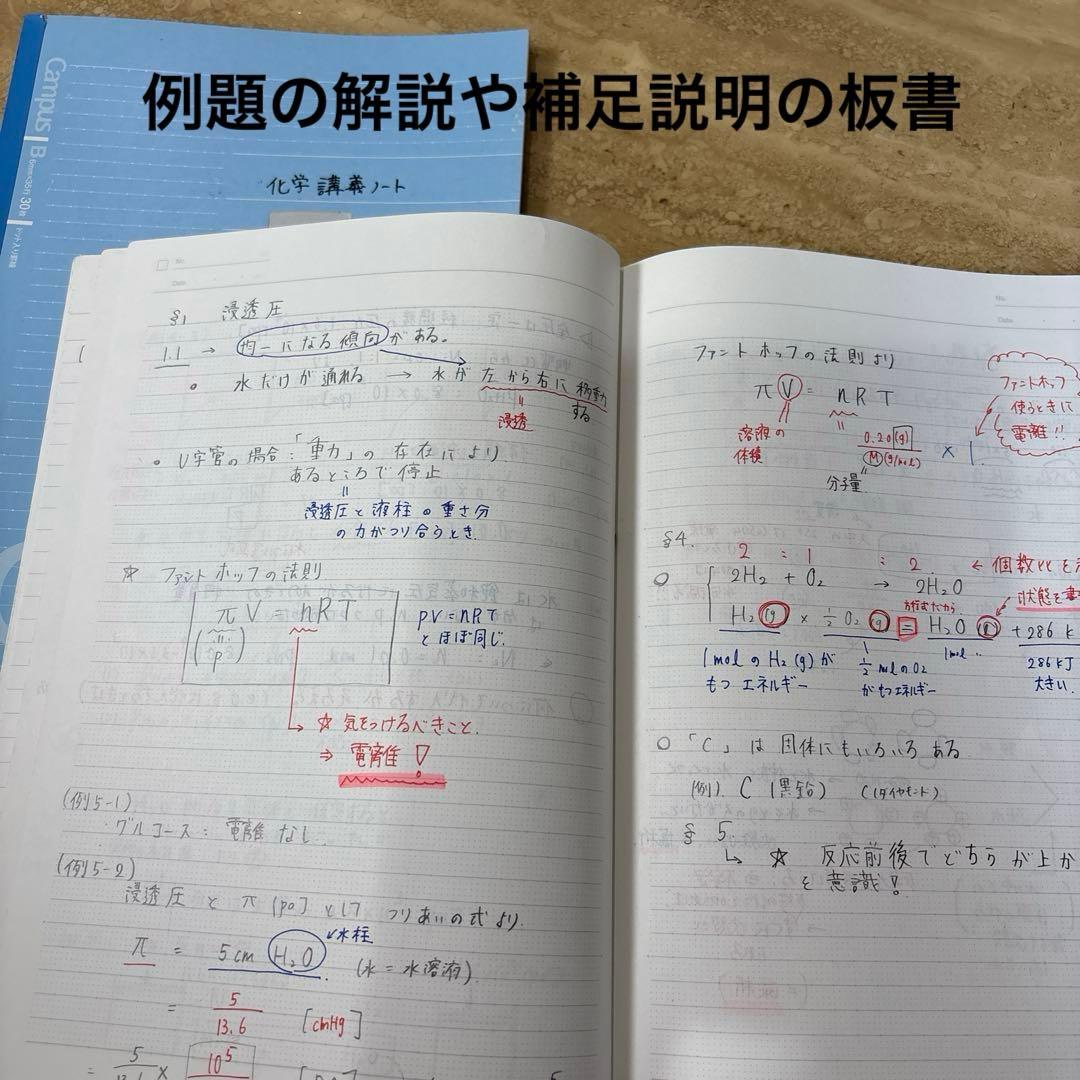 例題の解説や補足説明の板書
Campus B
6mm×35行 30枚
ドット入り罫線
化学 講義ノート
No.
Date
§1 浸透圧
1.1 → 均一になる傾向がある。
水だけが通れる → 水が左から右に移動
する
浸透
U字管の場合:「重力」の存在により
あるところで停止
浸透圧と液柱の重さ分
の力がつり合うとき.
☆ ファントホッフの法則
πV = nRT
p
PV = nRT
とほぼ同じ.
☆ 気をつけるべきこと.
⇒ 電離!
(例5-1)
グルコース: 電離なし.
(例5-2)
浸透圧を π [pa] として つりあいの式より.
π = 5cm H₂O (水=水溶液)
←水柱
= 5/13.6 [cmHg]
= 5/13.6 × 10⁵
No.
Date
ファントホッフの法則より
πV = nRT
溶液の
体積
0.20(g)/M(g/mol) × 1
分子量
ファントホッフ
使うときに
電離!!
§4.
2 : 1 : 2 ← 個数比を
2H₂ + O₂ → 2H₂O
H₂(g) × ½ O₂(g) = H₂O(l) + 286 k
状態を書
1molのH₂(g)が
もつエネルギー
½ molのO₂
がもつエネルギー
1mol 〃
286kJ
大きい.
「C」は固体にもいろいろある
(例) C(黒鉛) C(ダイヤモンド)
§5.
↳ ☆ 反応前後でどちらが上か
を意識!